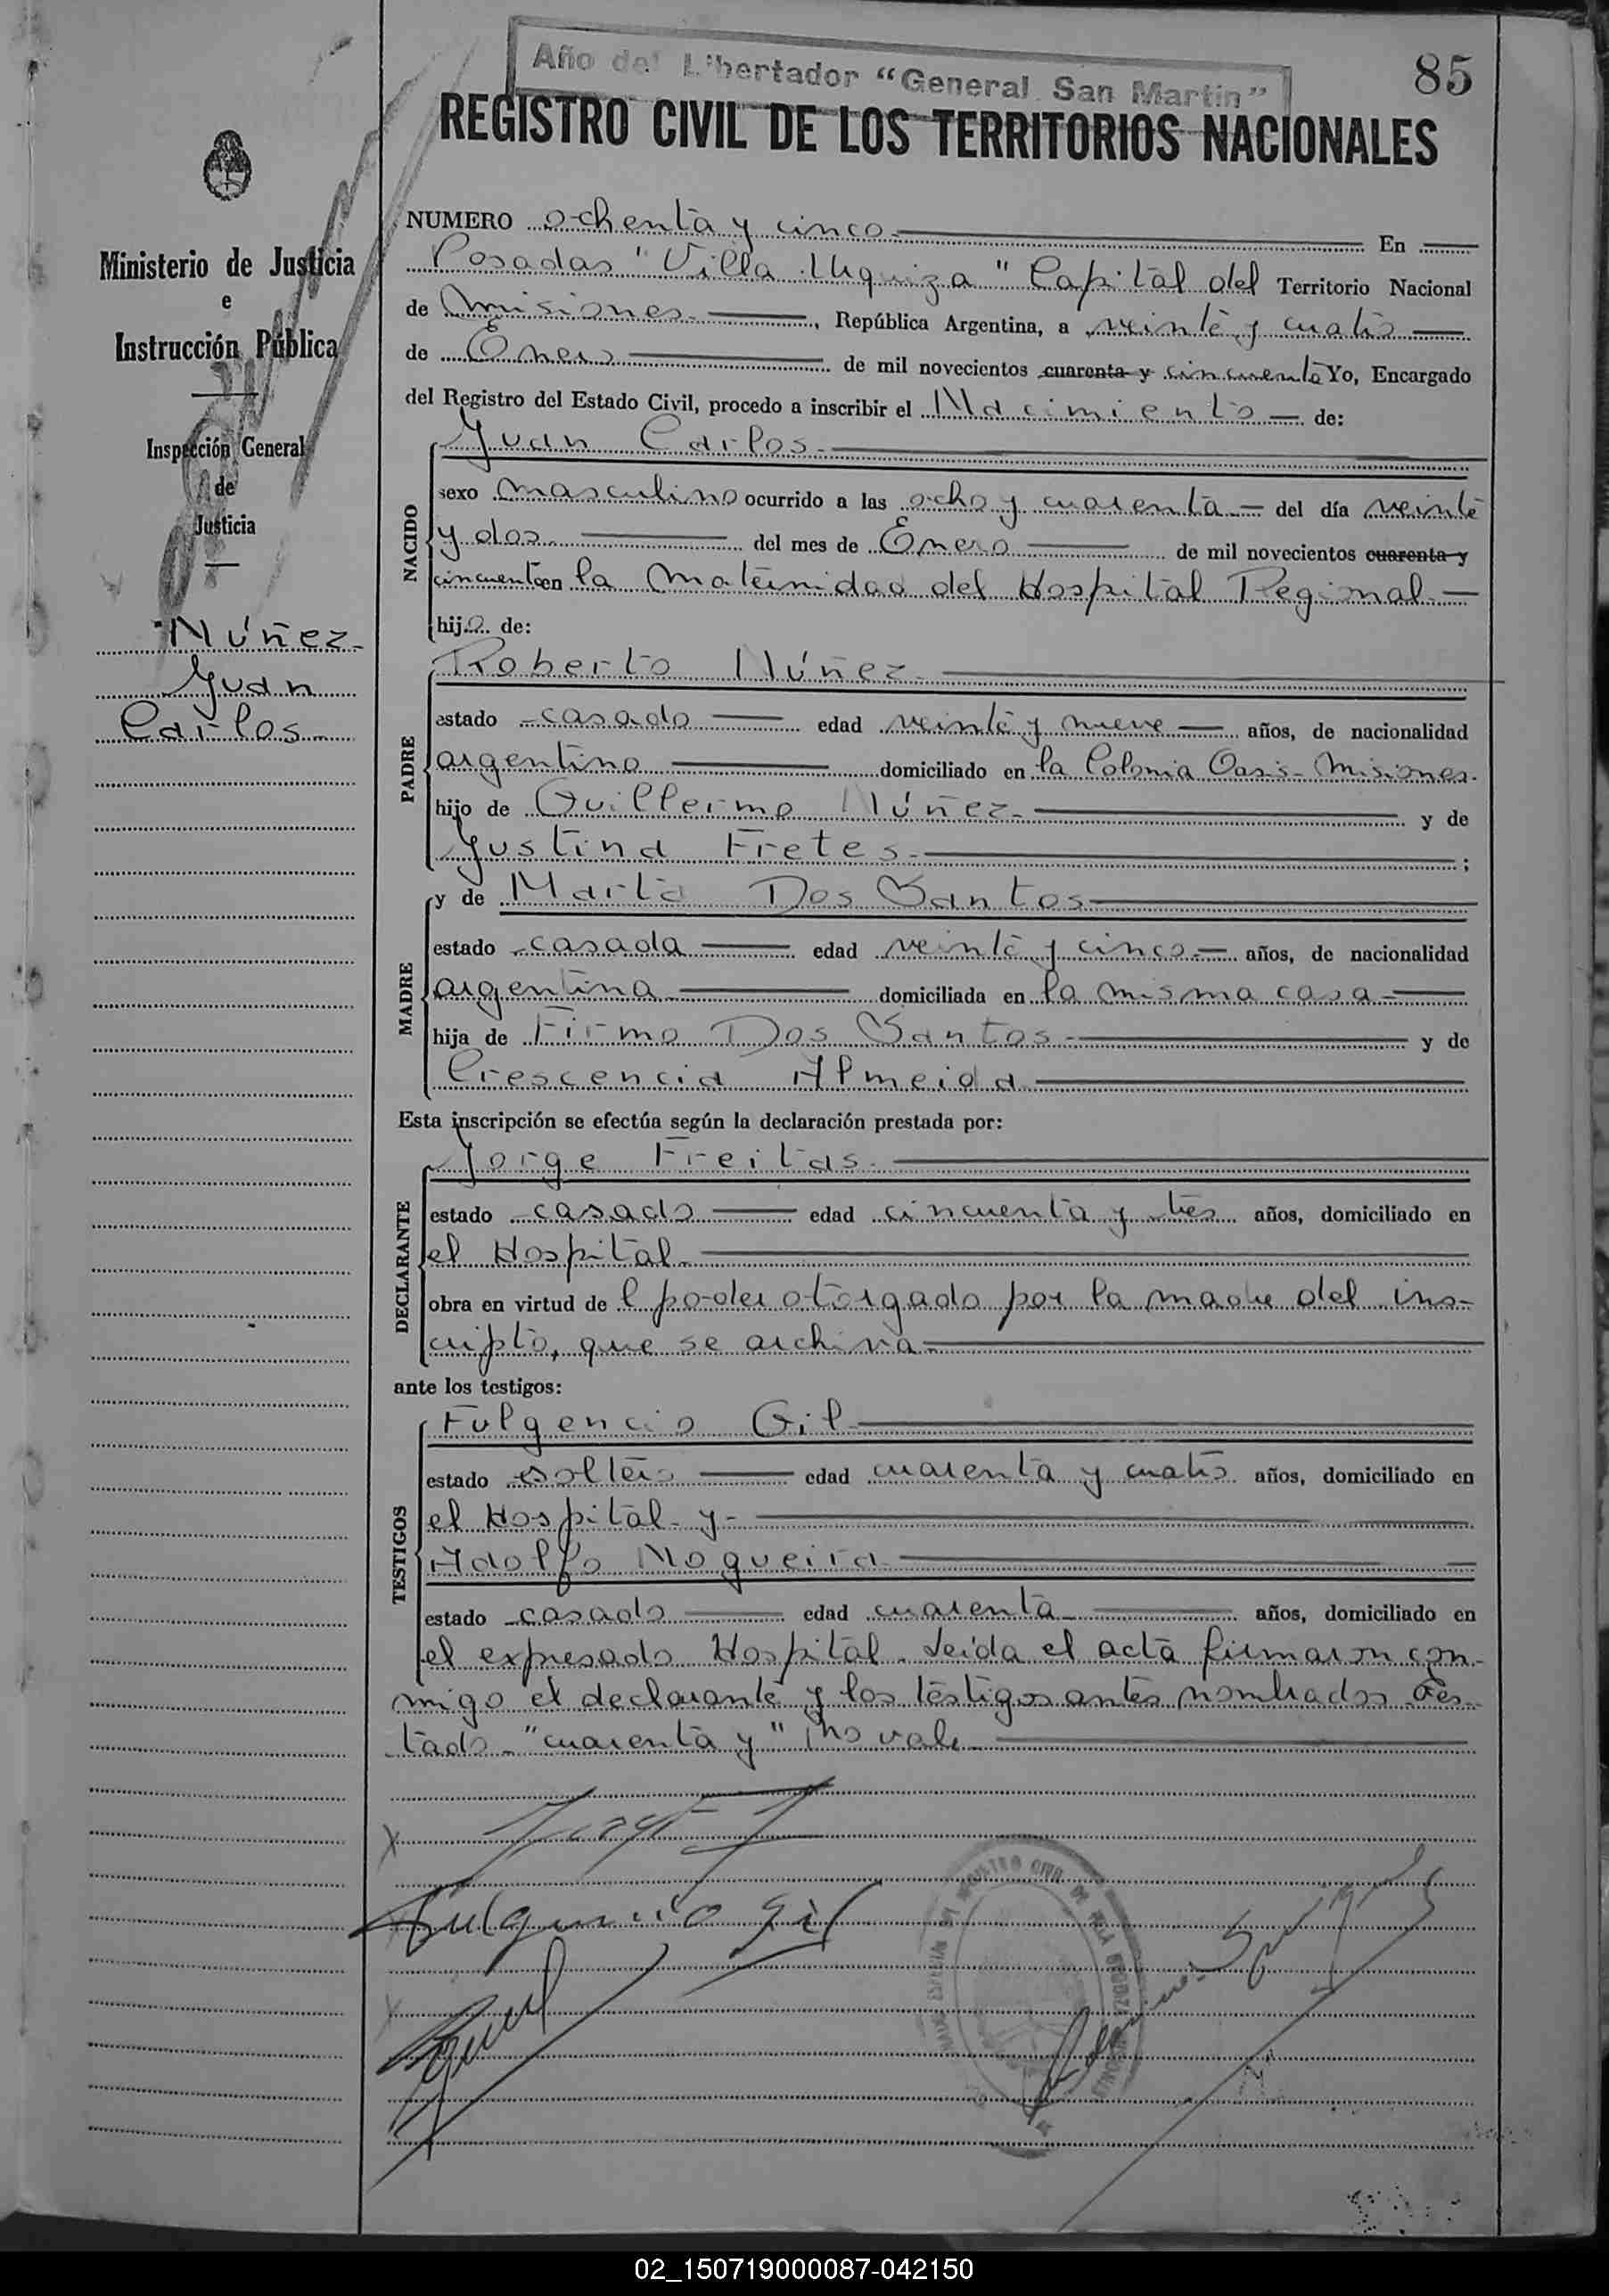 Año del Libertador "General San Martín"
85
REGISTRO CIVIL DE LOS TERRITORIOS NACIONALES
Ministerio de Justicia
e
Instrucción Pública
Inspección General
de
Justicia
Núñez
Juan
Carlos
NUMERO ochenta y cinco En
Posadas "Villa Urquiza" Capital del Territorio Nacional
de Misiones, República Argentina, a veinte y cuatro
de Enero de mil novecientos cuarenta y cincuenta Yo, Encargado
del Registro del Estado Civil, procedo a inscribir el Nacimiento de:
NACIDO
Juan Carlos
sexo masculino ocurrido a las ocho y cuarenta del día veinte
y dos del mes de Enero de mil novecientos cuarenta y
cincuenta en la Maternidad del Hospital Regional
hijo de:
PADRE
Roberto Núñez
estado casado edad veinte y nueve años, de nacionalidad
argentino domiciliado en la Colonia Oasis-Misiones.
hijo de Guillermo Núñez y de
Justina Fretes ;
MADRE
y de Marta Dos Santos
estado casada edad veinte y cinco años, de nacionalidad
argentina domiciliada en la misma casa
hija de Firmo Dos Santos y de
Crescencia Almeida
Esta inscripción se efectúa según la declaración prestada por:
DECLARANTE
Jorge Freitas
estado casado edad cincuenta y tres años, domiciliado en
el Hospital
obra en virtud de l poder otorgado por la madre del ins-
cripto, que se archiva
ante los testigos:
TESTIGOS
Fulgencio Gil
estado soltero edad cuarenta y cuatro años, domiciliado en
el Hospital y
Adolfo Nogueira
estado casado edad cuarenta años, domiciliado en
el expresado Hospital. Leída el acta firmaron con-
migo el declarante y los testigos antes nombrados. Tes-
tado "cuarenta y" no vale
Fulgencio Gil
02_150719000087-042150